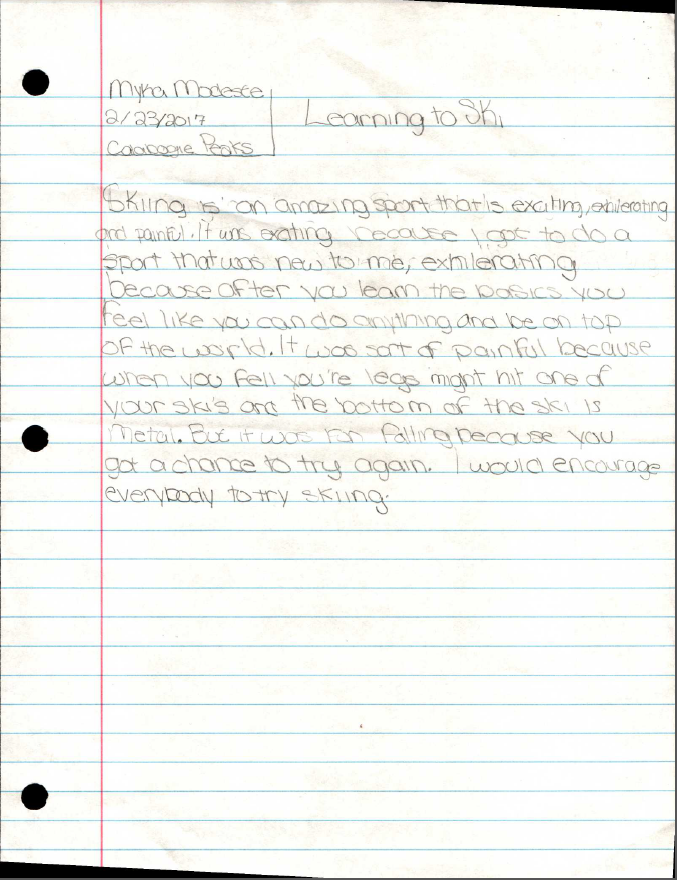 Myka Modeste
2/23/2017
Calabogie Peaks
Learning to Ski
Skiing is an amazing sport that is exciting, exhilerating
and painful. It was exciting because I got to do a
sport that was new to me, exhilerating
because after you learn the basics you
feel like you can do anything and be on top
of the world. It was sort of painful because
when you fell you're legs might hit one of
your ski's and the bottom of the ski is
metal. But it was fun falling because you
got a chance to try again. I would encourage
everybody to try skiing.